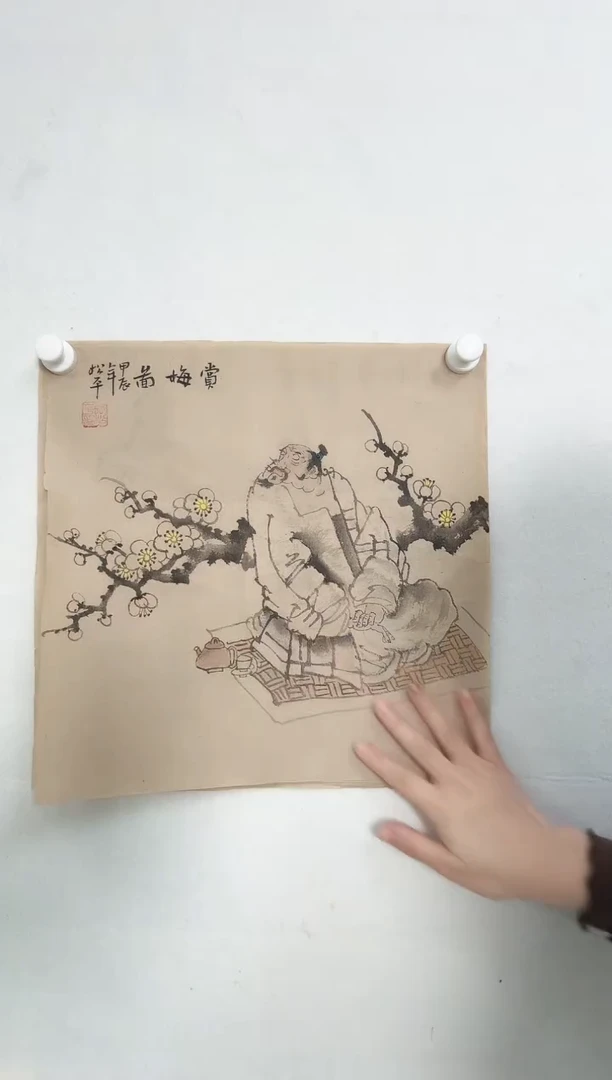 賞梅圖
甲辰
年
松平